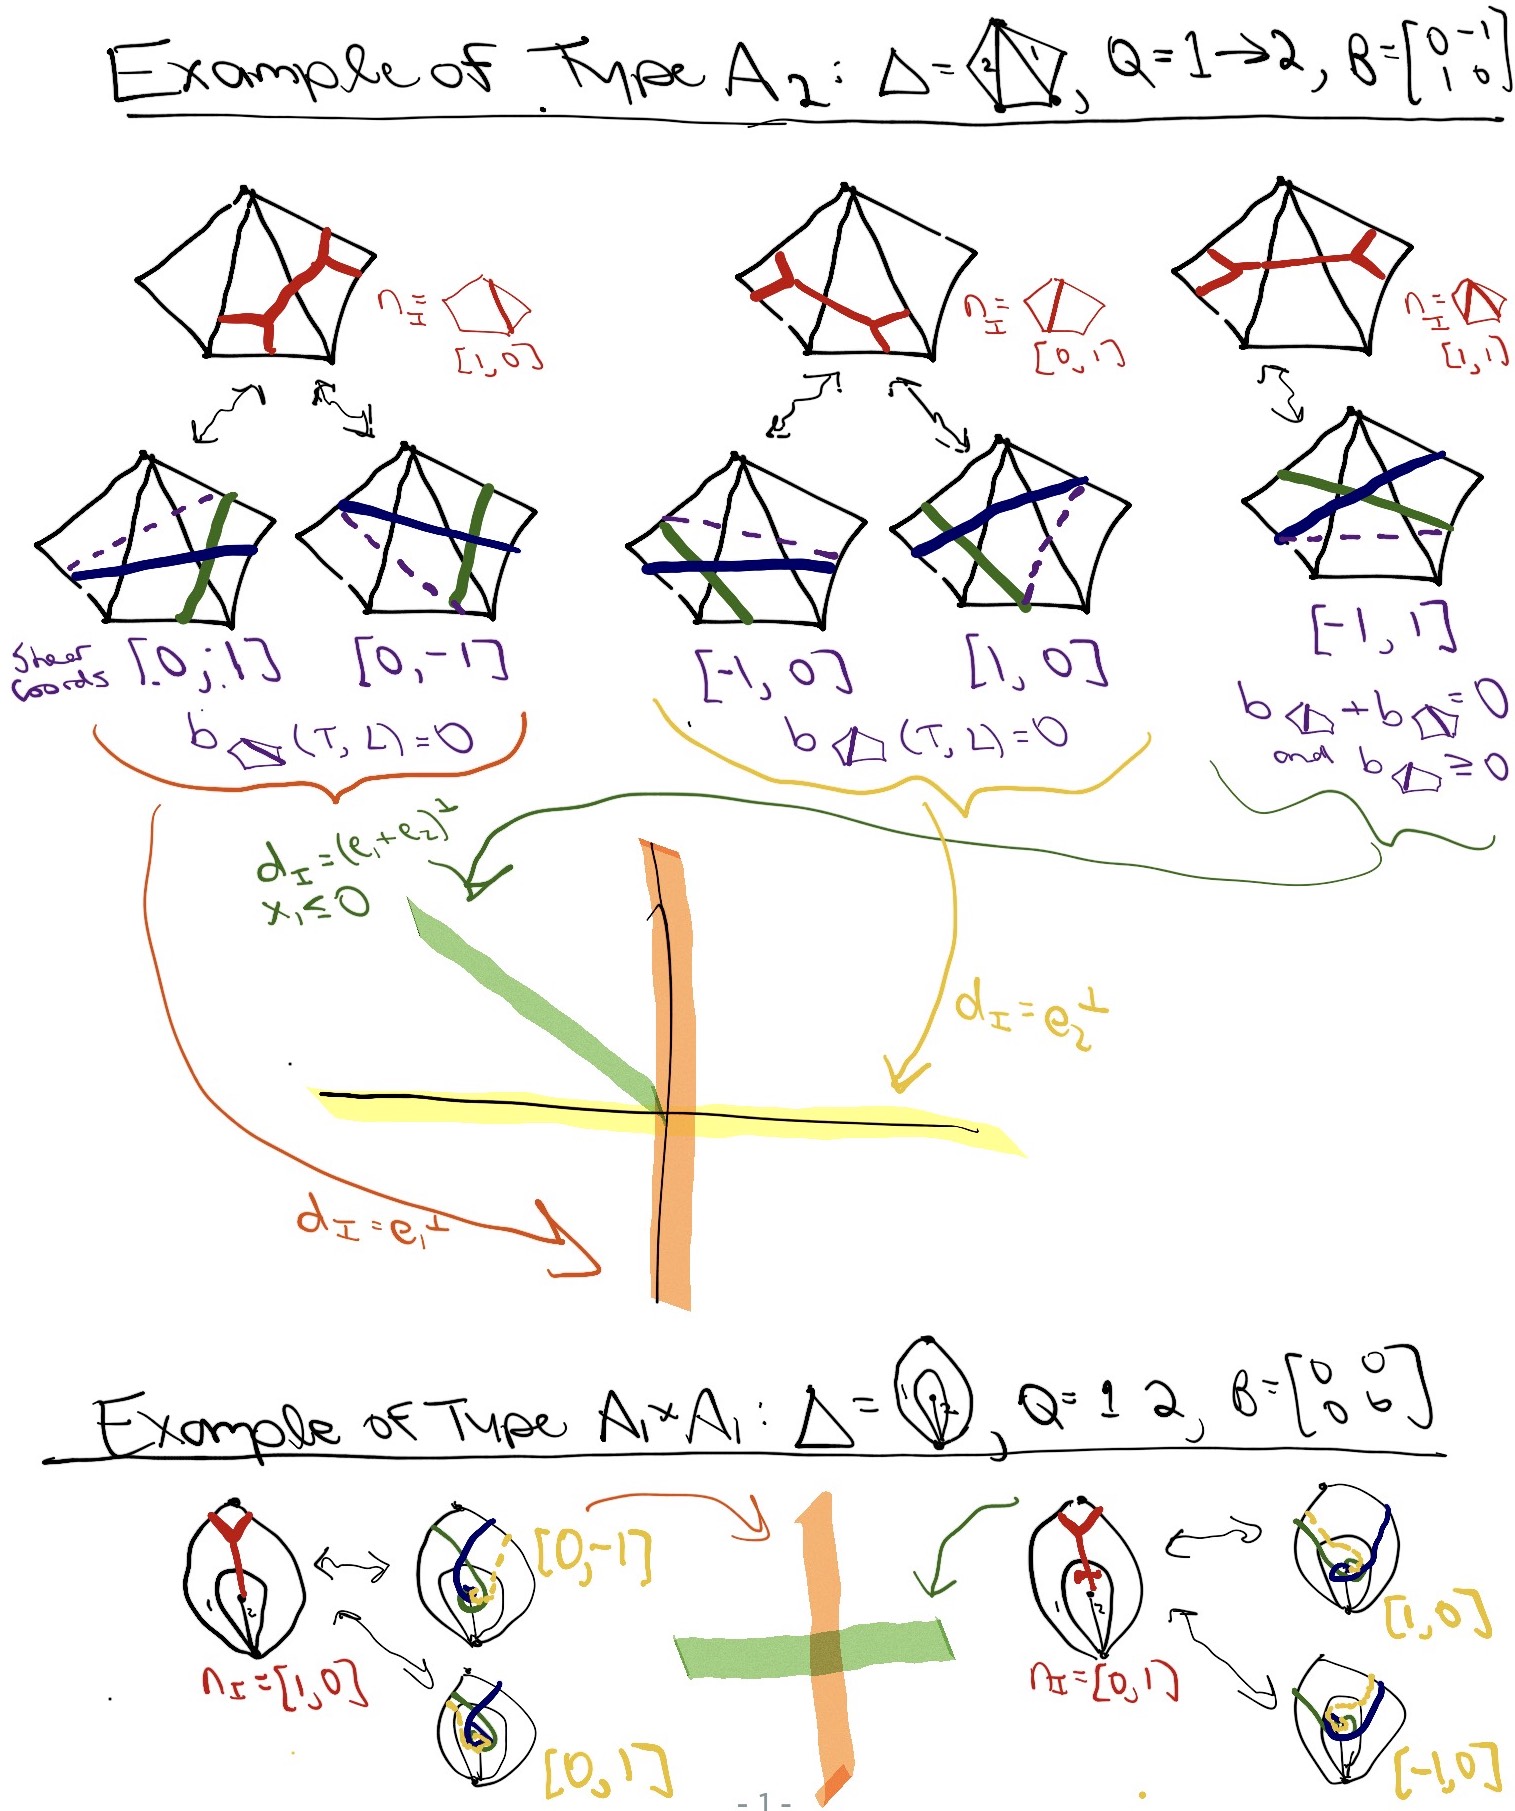 Example of Type A₂: Δ = 2 1, Q = 1 → 2, B = [0 -1
1 0]
n_I = [1,0]
n_I = [0,1]
n_I = [1,1]
Shear Coords [0, 1]
[0, -1]
[-1, 0]
[1, 0]
[-1, 1]
b (T, L) = 0
b (T, L) = 0
b + b = 0
and b ≥ 0
d_I = (e₁+e₂)^⊥
x₁ ≤ 0
d_I = e₂^⊥
d_I = e₁^⊥
Example of Type A₁×A₁: Δ = 1 2, Q = 1 2, B = [0 0
0 0]
1 2
[0,-1]
n_I = [1,0]
[0,1]
1 2
[1,0]
n_I = [0,1]
[-1,0]
- 1 -